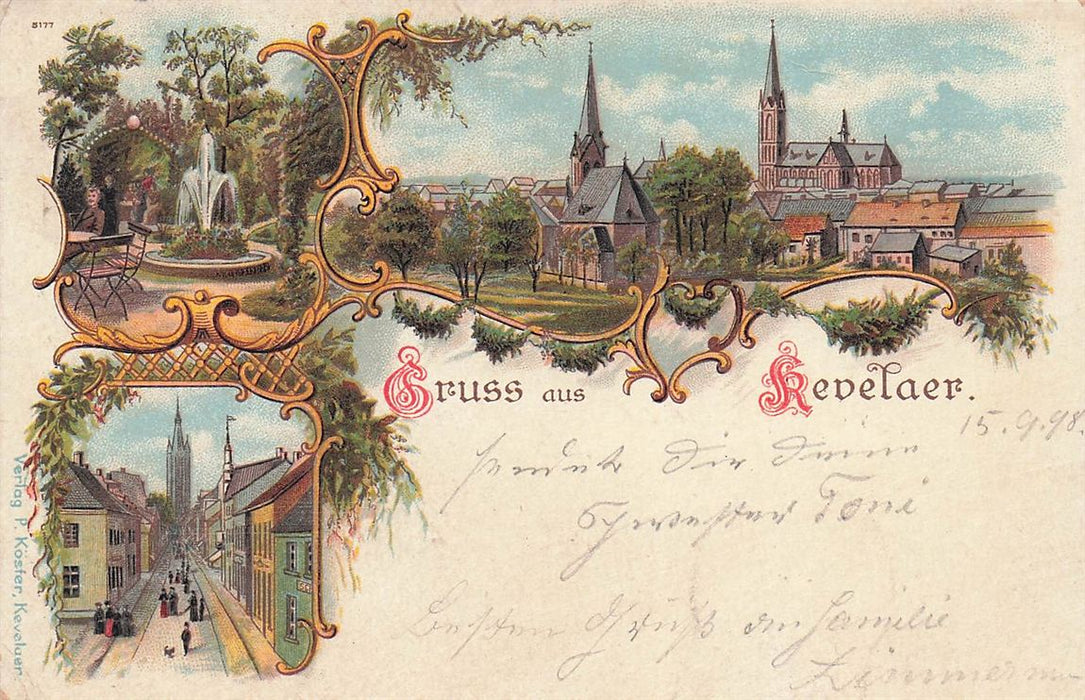 5177
Gruss aus Kevelaer.
15.9.98.
sendet Dir Deine
Schwester Toni
Besten Gruß an Familie
Zimmermann
Verlag P. Köster, Kevelaer.